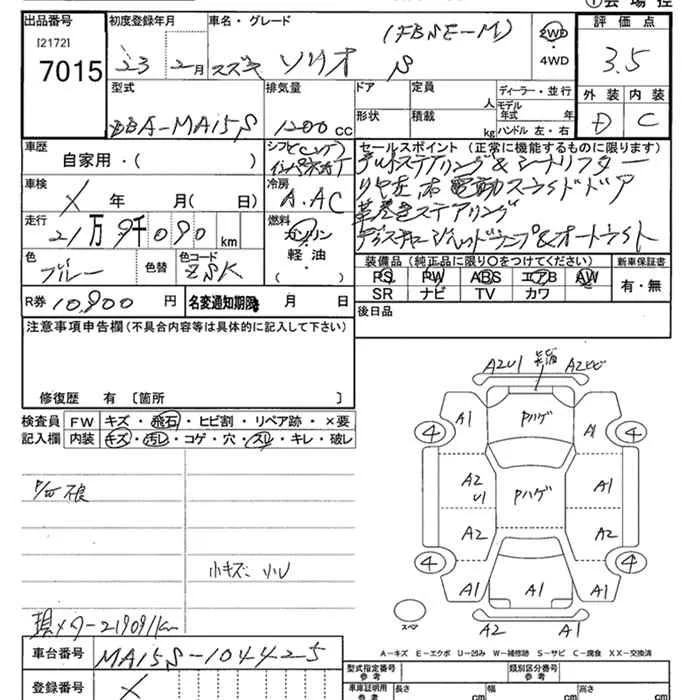 出品番号 初度登録年月 車名・グレード (FBSE-M) 2WD 評価点
[2172] 7015 23 2月 スズキ ソリオ S 4WD 3.5
型式 排気量 ドア 定員 人 ディーラー・並行 外装 内装
DBA-MA15S 1200 cc 形状 積載 kg モデル年式 年 ハンドル 左・右 D C
車歴 シフト セールスポイント (正常に機能するものに限ります)
自家用・( )
車検 冷房
X 年 月( 日) A.AC
走行 燃料
21万9千090 km ガソリン
軽油
( )
革巻きステアリング
ディスチャージヘッドランプ&オートライト
色 色替 色コード
ブルー ZSK
装備品 (純正品に限り○をつけてください) 新車保証書
PS PW ABS エアB AW 有・無
SR ナビ TV カワ
R券 10,900 円 名変通知期限 月 日
後日品
注意事項申告欄 (不具合内容等は具体的に記入して下さい)
修復歴 有 〔箇所 〕
検査員 FW キズ・飛石・ヒビ割・リペア跡・×要
記入欄 内装 キズ・汚レ・コゲ・穴・スレ・キレ・破レ
小キズ 小U
現メーター219091km
A2U1 A2ヒビ
A1 Pハゲ A1
4 4
A2 U1 Pハゲ A1
A2 A2
4 4
A1 A1 A1
スペア A2 A1
A-キズ E-エクボ U-凹み W-補修跡 S-サビ C-腐食 XX-交換済
車台番号 MA15S-104425
登録番号 X
型式指定番号 参考 類別区分番号 参考
車庫証明用 参考 長さ cm 幅 cm 高さ cm